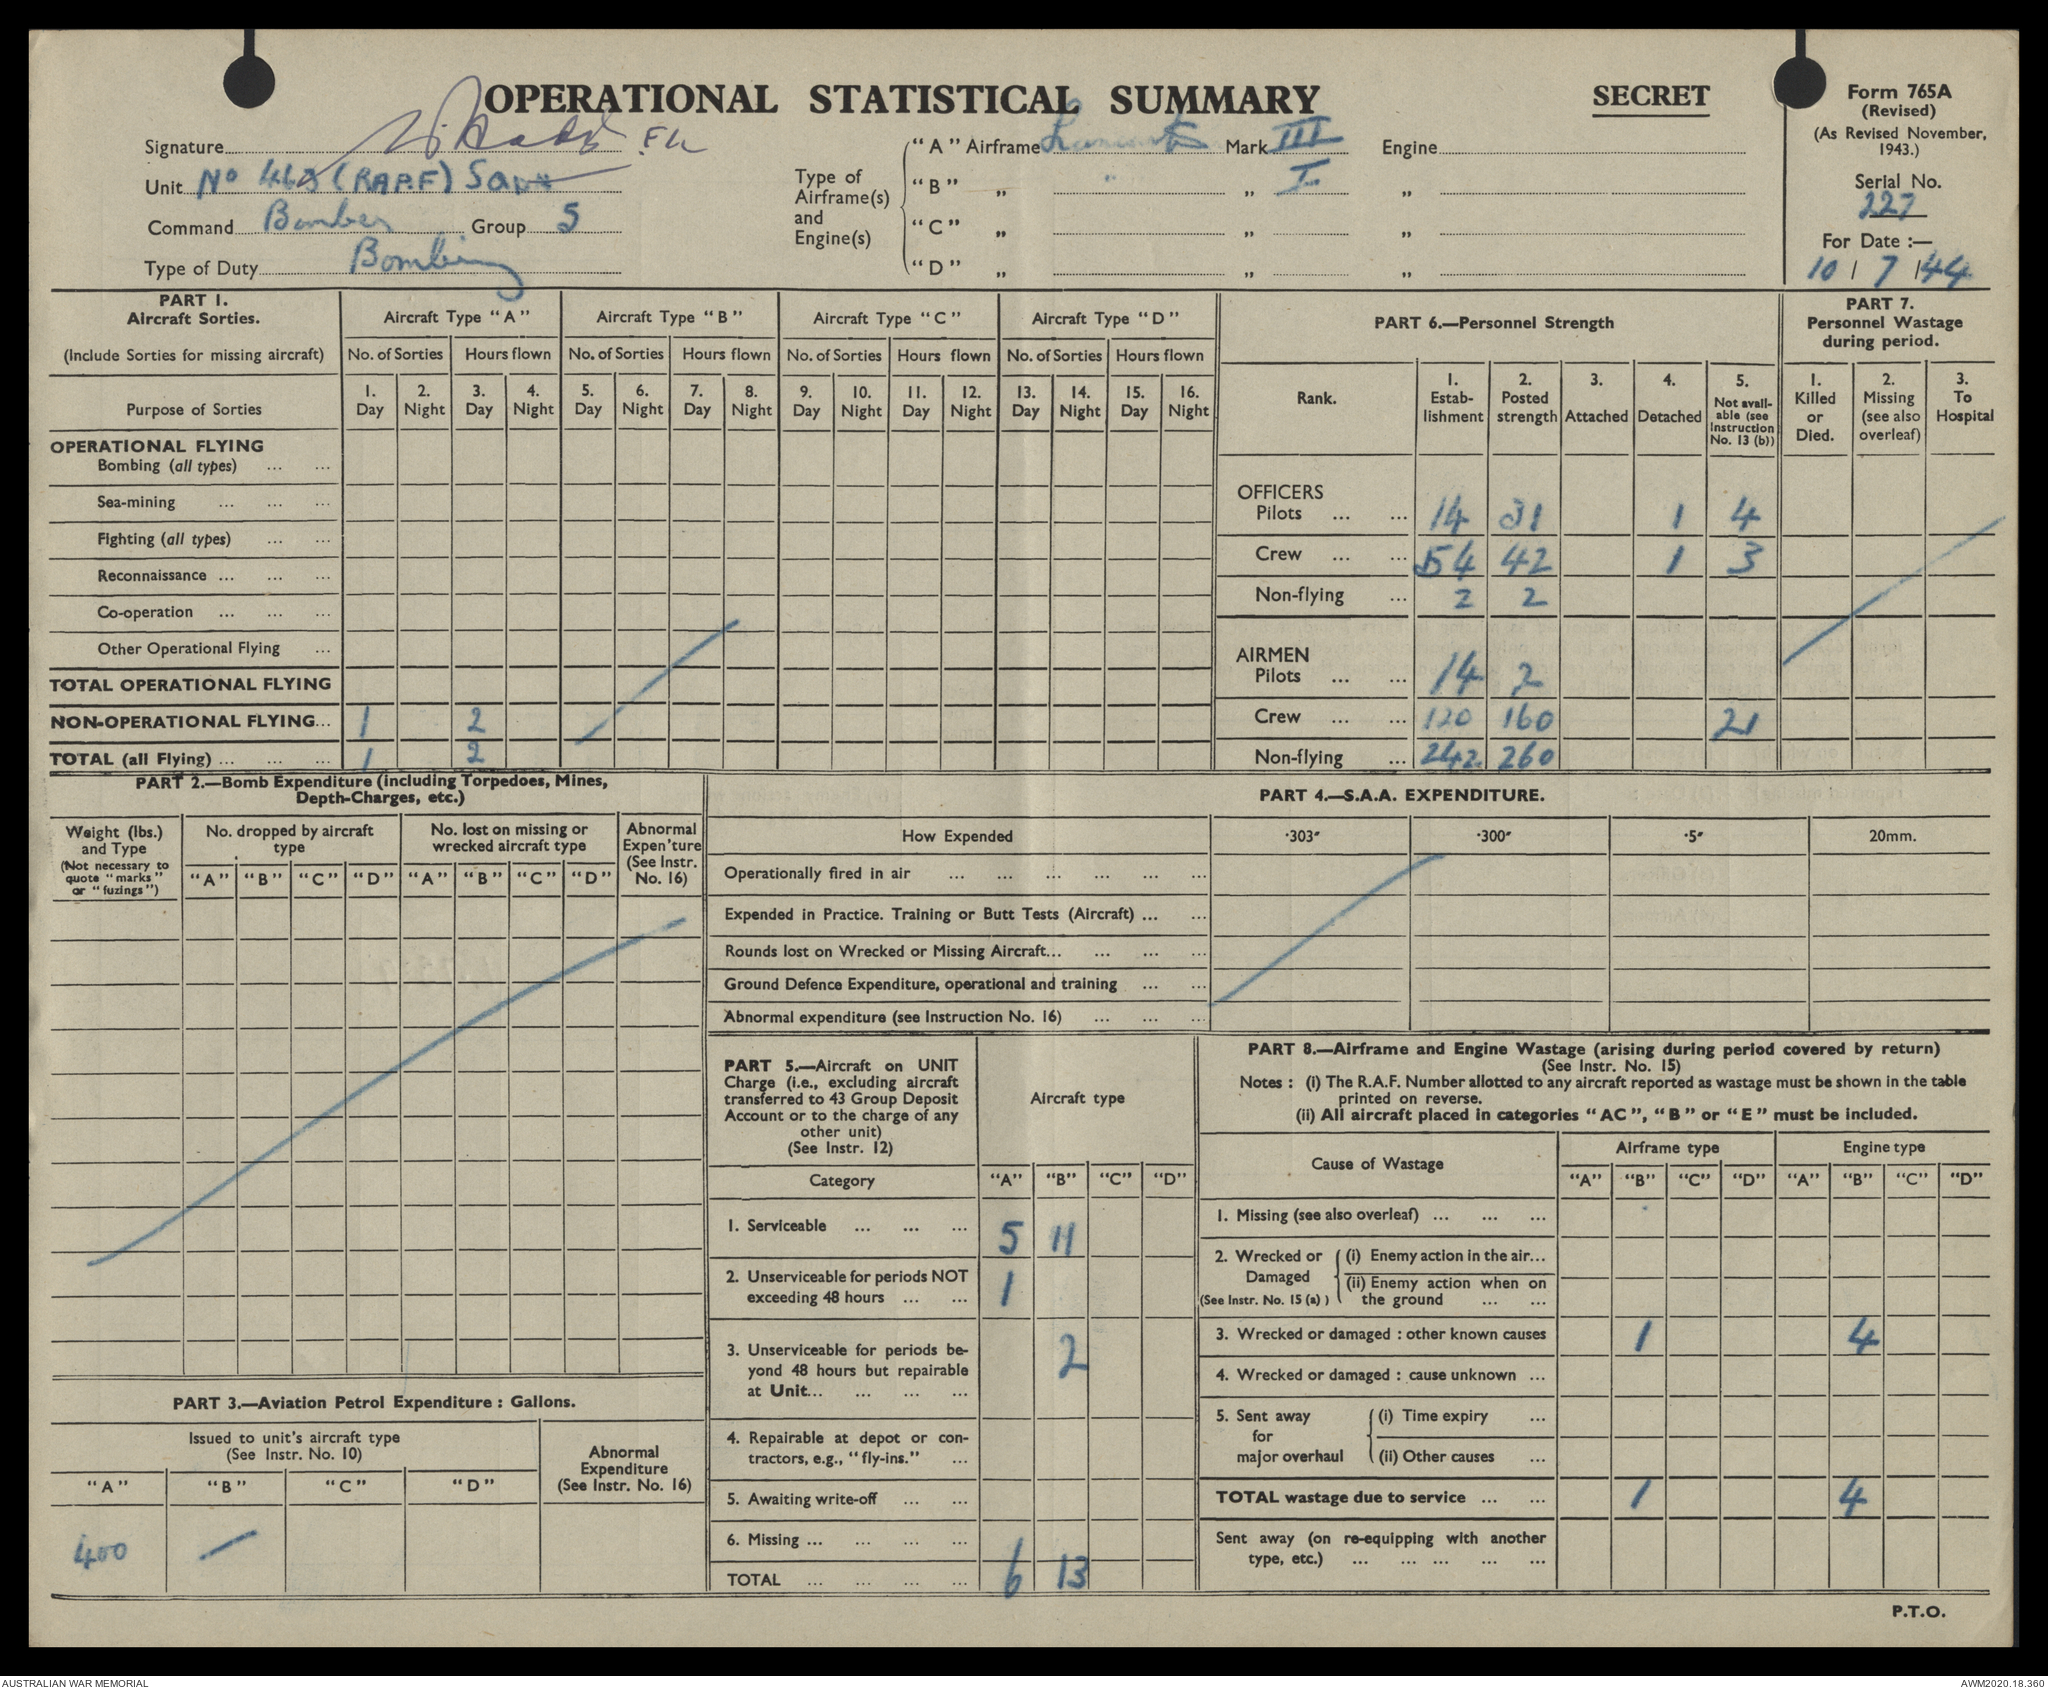 OPERATIONAL STATISTICAL SUMMARY
SECRET
Form 765A
(Revised)
(As Revised November,
1943.)
Serial No.
227
For Date :—
10 / 7 / 44
Signature
Unit No 463 (RAAF) Sqdn
Command Bomber Group 5
Type of Duty Bombing
Type of
Airframe(s)
and
Engine(s)
"A" Airframe Lancaster Mark III Engine
"B" „ " „ I „
"C" „ „ „
"D" „ „ „
PART 1.
Aircraft Sorties.
(Include Sorties for missing aircraft)
Purpose of Sorties
Aircraft Type "A" Aircraft Type "B" Aircraft Type "C" Aircraft Type "D"
No. of Sorties Hours flown No. of Sorties Hours flown No. of Sorties Hours flown No. of Sorties Hours flown
1. 2. 3. 4. 5. 6. 7. 8. 9. 10. 11. 12. 13. 14. 15. 16.
Day Night Day Night Day Night Day Night Day Night Day Night Day Night Day Night
OPERATIONAL FLYING
Bombing (all types) ... ...
Sea-mining ... ... ...
Fighting (all types) ... ...
Reconnaissance ... ... ...
Co-operation ... ... ...
Other Operational Flying ...
TOTAL OPERATIONAL FLYING
NON-OPERATIONAL FLYING... 1 2
TOTAL (all Flying) ... ... ... 1 2
PART 6.—Personnel Strength
Rank.
1.
Estab-
lishment
2.
Posted
strength
3.
Attached
4.
Detached
5.
Not avail-
able (see
Instruction
No. 13 (b))
OFFICERS
Pilots ... ... 14 31 1 4
Crew ... ... 54 42 1 3
Non-flying ... 2 2
AIRMEN
Pilots ... ... 14 2
Crew ... ... 120 160 21
Non-flying ... 242 260
PART 7.
Personnel Wastage
during period.
1.
Killed
or
Died.
2.
Missing
(see also
overleaf)
3.
To
Hospital
PART 2.—Bomb Expenditure (including Torpedoes, Mines,
Depth-Charges, etc.)
Weight (lbs.)
and Type
(Not necessary to
quote "marks"
or "fuzings")
No. dropped by aircraft
type
No. lost on missing or
wrecked aircraft type
Abnormal
Expen'ture
(See Instr.
No. 16)
"A" "B" "C" "D" "A" "B" "C" "D"
PART 3.—Aviation Petrol Expenditure : Gallons.
Issued to unit's aircraft type
(See Instr. No. 10)
Abnormal
Expenditure
(See Instr. No. 16)
"A" "B" "C" "D"
400 —
PART 4.—S.A.A. EXPENDITURE.
How Expended ·303" ·300" ·5" 20mm.
Operationally fired in air ... ... ... ... ... ...
Expended in Practice. Training or Butt Tests (Aircraft) ... ...
Rounds lost on Wrecked or Missing Aircraft... ... ... ...
Ground Defence Expenditure, operational and training ... ...
Abnormal expenditure (see Instruction No. 16) ... ... ...
PART 5.—Aircraft on UNIT
Charge (i.e., excluding aircraft
transferred to 43 Group Deposit
Account or to the charge of any
other unit)
(See Instr. 12)
Aircraft type
Category "A" "B" "C" "D"
1. Serviceable ... ... ... 5 11
2. Unserviceable for periods NOT
exceeding 48 hours ... ... 1
3. Unserviceable for periods be-
yond 48 hours but repairable
at Unit... ... ... ... 2
4. Repairable at depot or con-
tractors, e.g., "fly-ins." ...
5. Awaiting write-off ... ...
6. Missing ... ... ... ...
TOTAL ... ... ... ... 6 13
PART 8.—Airframe and Engine Wastage (arising during period covered by return)
(See Instr. No. 15)
Notes : (i) The R.A.F. Number allotted to any aircraft reported as wastage must be shown in the table
printed on reverse.
(ii) All aircraft placed in categories "AC", "B" or "E" must be included.
Cause of Wastage Airframe type Engine type
"A" "B" "C" "D" "A" "B" "C" "D"
1. Missing (see also overleaf) ... ... ...
2. Wrecked or
Damaged
(See Instr. No. 15 (a) )
(i) Enemy action in the air...
(ii) Enemy action when on
the ground ... ...
3. Wrecked or damaged : other known causes 1 4
4. Wrecked or damaged : cause unknown ...
5. Sent away
for
major overhaul
(i) Time expiry ...
(ii) Other causes ...
TOTAL wastage due to service ... ... 1 4
Sent away (on re-equipping with another
type, etc.) ... ... ... ... ...
P.T.O.
AUSTRALIAN WAR MEMORIAL
AWM2020.18.360